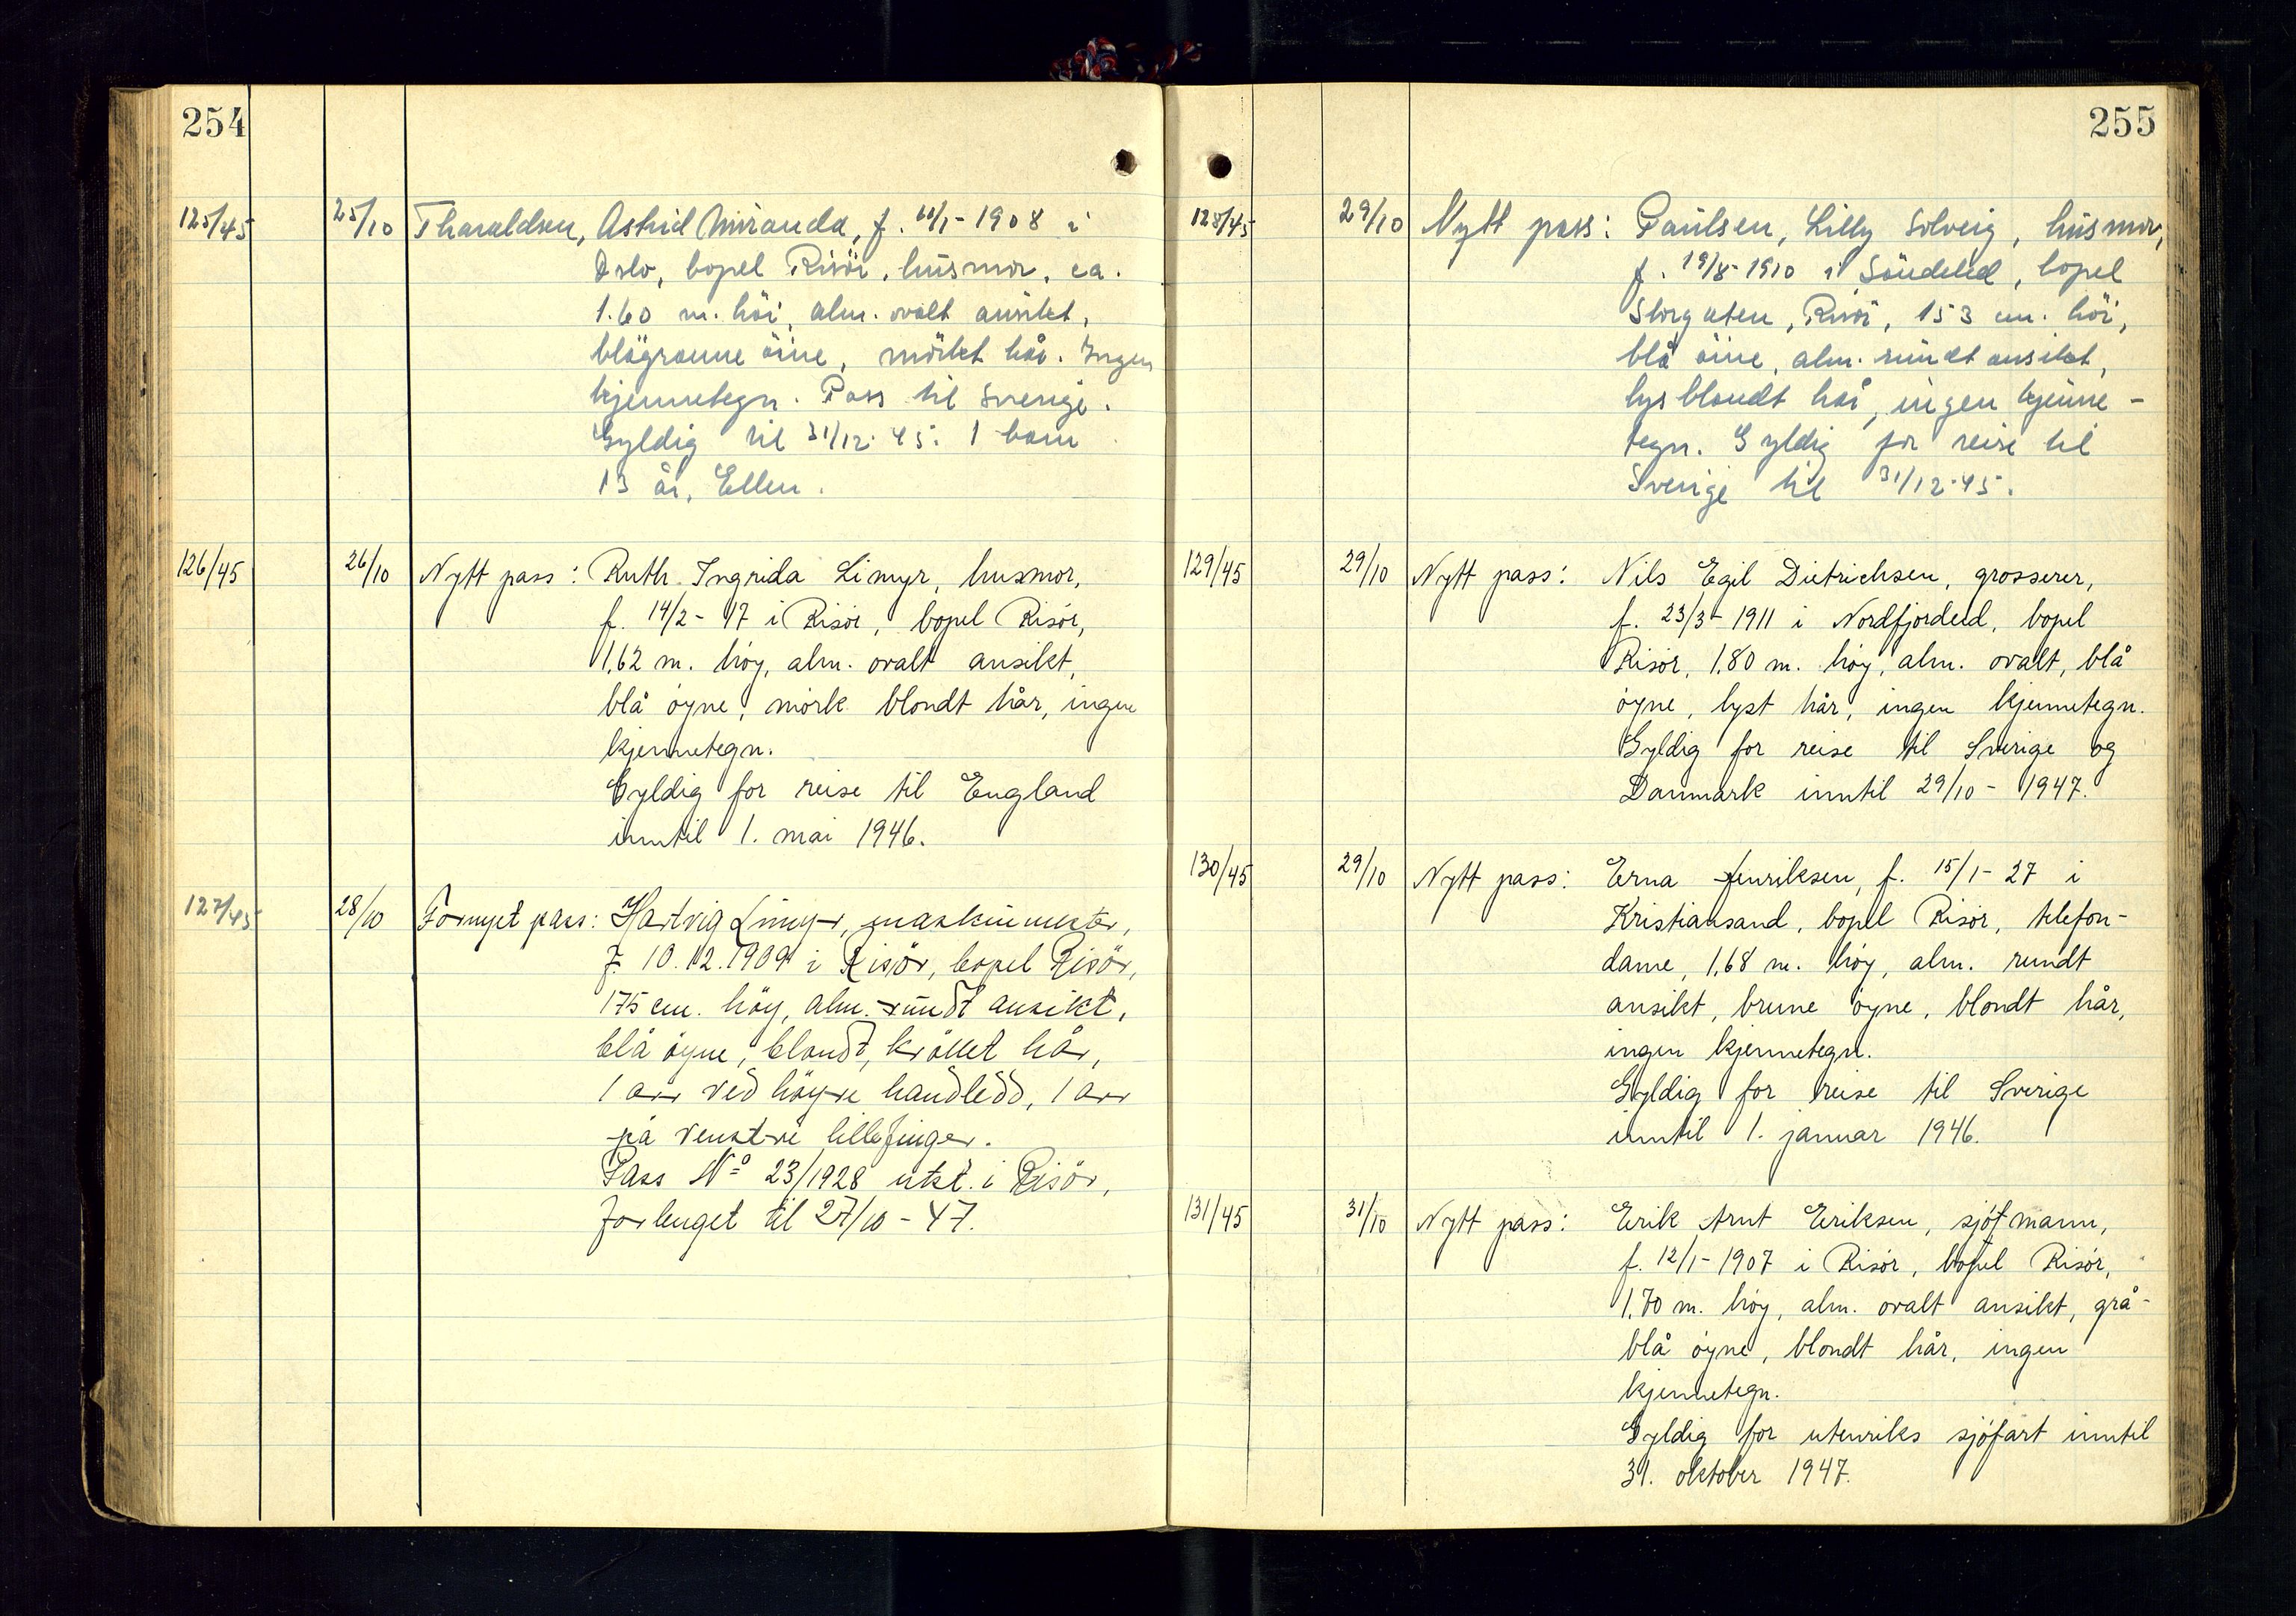 254
125/45 25/10 Tharaldsen, Astrid Miranda, f. /1-1908 i
Oslo, bopel Risör, husmor, ca.
1.60 m. höi, alm. ovalt ansikt,
blågrönne öine, mörket hår. Ingen
kjennetegn. Pass til Sverige.
Gyldig til 31/12-45. 1 barn
13 år, Ellen.
126/45 26/10 Nytt pass: Ruth Ingrida Limyr, husmor,
f. 14/2-17 i Risör, bopel Risör,
1,62 m. høy, alm. ovalt ansikt,
blå øyne, mørk blondt hår, ingen
kjennetegn.
Gyldig for reise til England
inntil 1. mai 1946.
127/45 28/10 Fornyet pass: Hartvig Limyr, maskinmester,
f. 10.12.1909 i Risör, bopel Risör,
175 cm. höy, alm. rundt ansikt,
blå öyne, blondt, kröllet hår,
1 arr ved höyre håndledd, 1 arr
på venstre lillefinger.
Pass Nº 23/1928 utst. i Risör,
forlenget til 27/10-47.
255
128/45 29/10 Nytt pass: Paulsen, Lilly Solveig, husmor,
f. 19/8-1910 i Söndeled, bopel
Storgaten, Risör, 153 cm. höi,
blå öine, alm. rundt ansikt,
lys blondt hår, ingen kjenne-
tegn. Gyldig for reise til
Sverige til 31/12-45.
129/45 29/10 Nytt pass: Nils Egil Dietrichsen, grosserer,
f. 23/3-1911 i Nordfjordeid, bopel
Risør, 1,80 m. høy, alm. ovalt, blå
øyne, lyst hår, ingen kjennetegn.
Gyldig for reise til Sverige og
Danmark inntil 29/10-1947.
130/45 29/10 Nytt pass: Erna Henriksen, f. 15/1-27 i
Kristiansand, bopel Risør, telefon-
dame, 1,68 m. høy, alm. rundt
ansikt, brune øyne, blondt hår,
ingen kjennetegn.
Gyldig for reise til Sverige
inntil 1. januar 1946.
131/45 31/10 Nytt pass: Erik Arnt Eriksen, sjøfmann,
f. 12/1-1907 i Risør, bopel Risør,
1,70 m. høy, alm. ovalt ansikt, grå-
blå øyne, blondt hår, ingen
kjennetegn.
Gyldig for utenriks sjøfart inntil
31. oktober 1947.